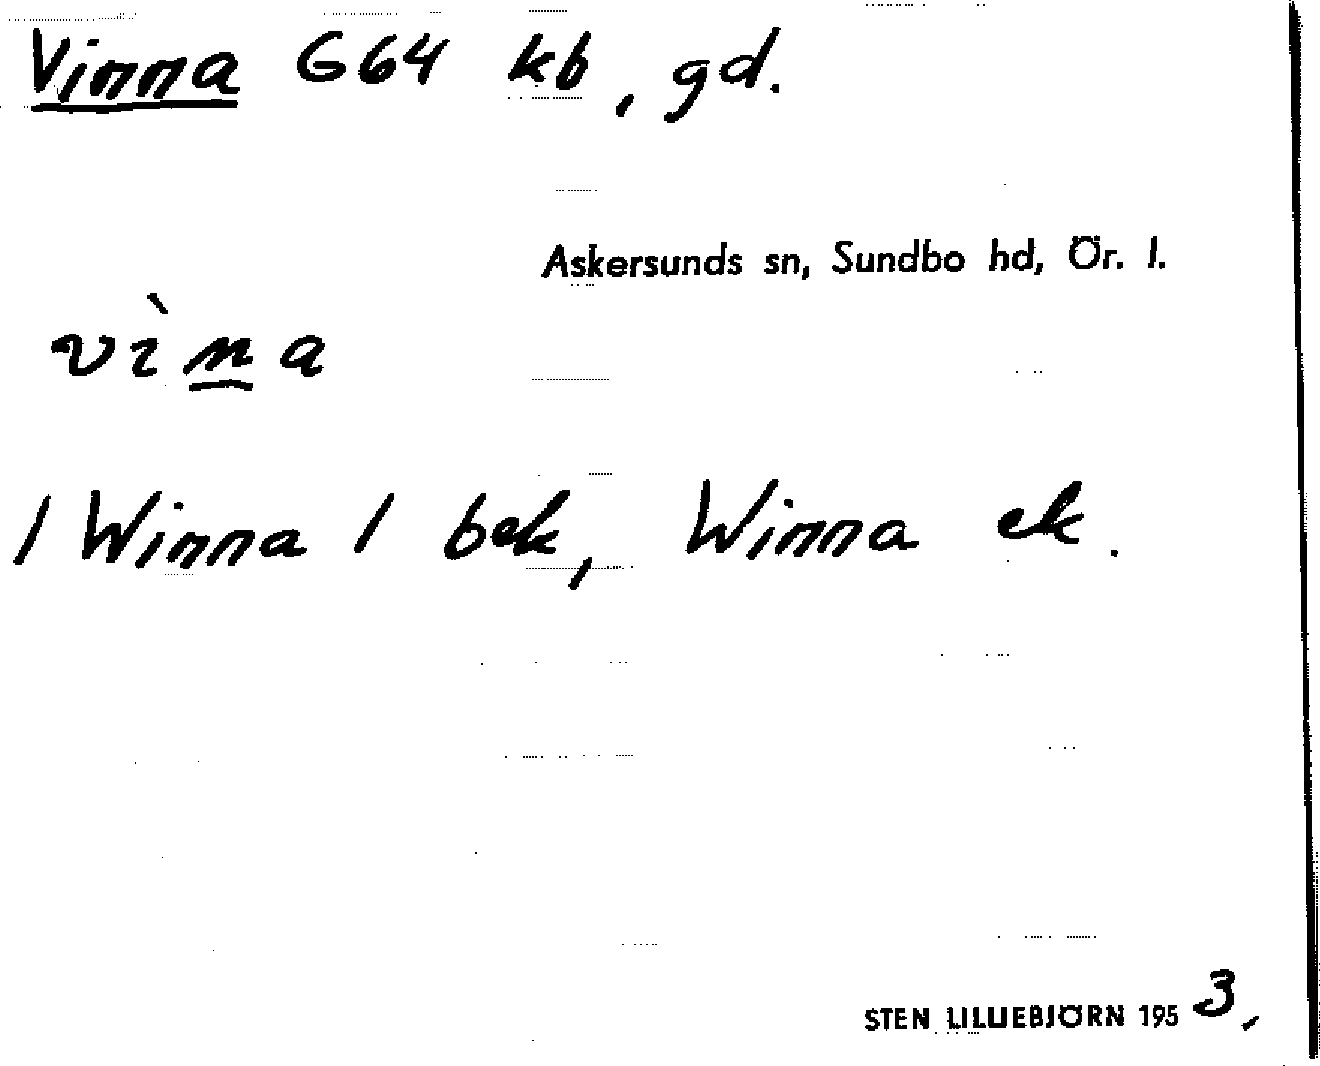 Vinna G64 kb, gd.
Askersunds sn, Sundbo hd, Ör. l.
vìna
/ Winna / bek, Winna ek.
STEN LILLIEBJÖRN 1953.